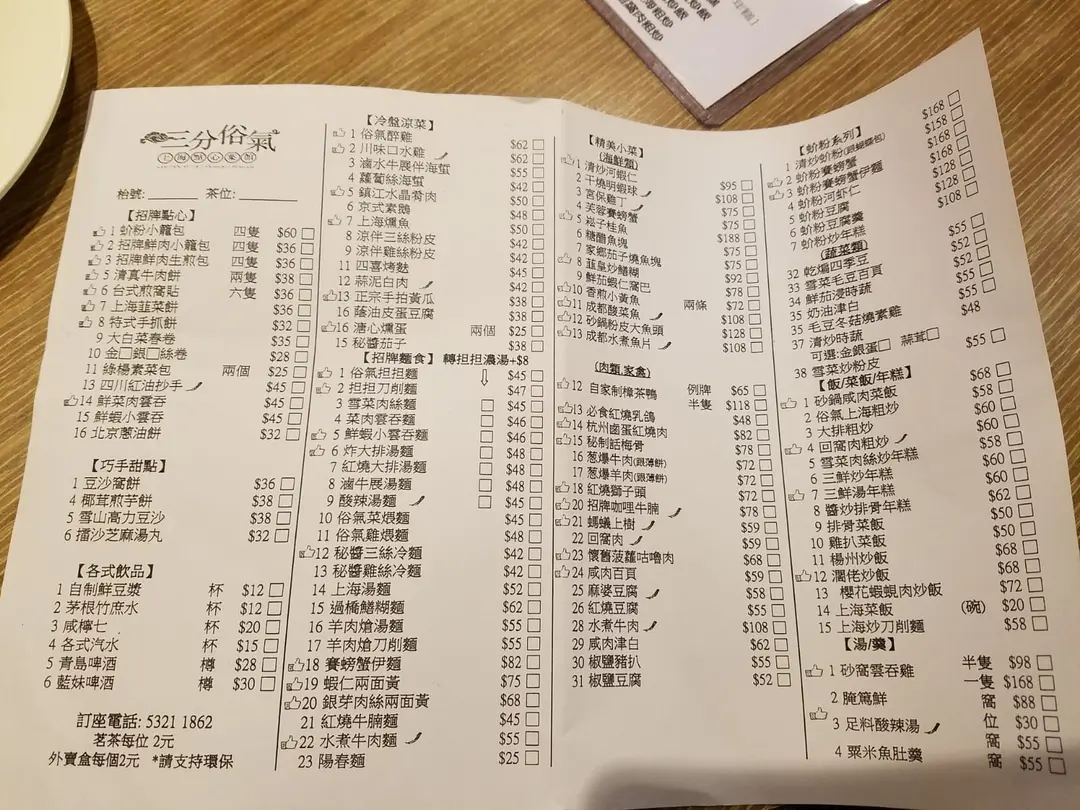 三分俗氣
上海點心菜館
枱號:______ 茶位:______
【招牌點心】
1 蚧粉小籠包 四隻 $60
2 招牌鮮肉小籠包 四隻 $36
3 招牌鮮肉生煎包 四隻 $36
5 清真牛肉餅 兩隻 $38
6 台式煎窩貼 六隻 $36
7 上海韮菜餅 $36
8 特式手抓餅 $32
9 大白菜春卷 $35
10 金□銀□絲卷 $28
11 綠楊素菜包 兩個 $25
13 四川紅油抄手 $45
14 鮮菜肉雲吞 $45
15 鮮蝦小雲吞 $45
16 北京蔥油餅 $32
【巧手甜點】
1 豆沙窩餅 $36
4 椰茸煎芋餅 $38
5 雪山高力豆沙 $38
6 擂沙芝麻湯丸 $32
【各式飲品】
1 自制鮮豆漿 杯 $12
2 茅根竹庶水 杯 $12
3 咸檸七 杯 $20
4 各式汽水 杯 $15
5 青島啤酒 樽 $28
6 藍妹啤酒 樽 $30
訂座電話: 5321 1862
茗茶每位 2元
外賣盒每個2元 *請支持環保
【冷盤涼菜】
1 俗氣醉雞 $62
2 川味口水雞 $62
3 滷水牛展伴海蜇 $55
4 蘿蔔絲海蜇 $42
5 鎮江水晶肴肉 $55
6 京式素鵝 $50
7 上海燻魚 $48
8 涼伴三絲粉皮 $50
9 涼伴雞絲粉皮 $42
11 四喜烤麩 $45
12 蒜泥白肉 $42
13 正宗手拍黃瓜 $38
16 蔭油皮蛋豆腐 $38
16 溏心燻蛋 兩個 $25
15 秘醬茄子 $38
【招牌麵食】轉担担濃湯+$8
1 俗氣担担麵 $45
2 担担刀削麵 $47
3 雪菜肉絲麵 $45
4 菜肉雲吞麵 $46
5 鮮蝦小雲吞麵 $46
6 炸大排湯麵 $48
7 紅燒大排湯麵 $48
8 滷牛展湯麵 $48
9 酸辣湯麵 $45
10 俗氣菜煨麵 $45
11 俗氣雞煨麵 $48
12 秘醬三絲冷麵 $42
13 秘醬雞絲冷麵 $42
14 上海湯麵 $52
15 過橋鱔糊麵 $62
16 羊肉熗湯麵 $55
17 羊肉熗刀削麵 $55
18 賽螃蟹伊麵 $82
19 蝦仁兩面黃 $75
20 銀芽肉絲兩面黃 $68
21 紅燒牛腩麵 $45
22 水煮牛肉麵 $55
23 陽春麵 $25
【精美小菜】
(海鮮類)
1 清炒河蝦仁 $95
2 干燒明蝦球 $108
3 宮保雞丁 $75
4 芙蓉賽螃蟹 $75
5 崧子桂魚 $188
6 糖醋魚塊 $75
7 家鄉茄子燒魚塊 $75
8 韮皇炒鱔糊 $92
9 鮮茄蝦仁窩巴 $78
10 香煎小黃魚 兩條 $72
11 成都酸菜魚 $108
12 砂鍋粉皮大魚頭 $128
13 成都水煮魚片 $108
(肉類.家禽)
12 自家制樟茶鴨 例牌 $65
半隻 $118
13 必食紅燒乳鴿 $48
14 杭州鹵蛋紅燒肉 $82
15 秘制話梅骨 $78
16 葱爆牛肉(跟薄餅) $72
17 葱爆羊肉(跟薄餅) $72
18 紅燒獅子頭 $72
20 招牌咖哩牛腩 $78
21 螞蟻上樹 $59
22 回窩肉 $59
23 懷舊菠蘿咕嚕肉 $68
24 咸肉百頁 $59
25 麻婆豆腐 $58
26 紅燒豆腐 $55
28 水煮牛肉 $108
29 咸肉津白 $62
30 椒鹽豬扒 $55
31 椒鹽豆腐 $52
【蚧粉系列】
1 清炒蚧粉(跟蝴蝶包) $168
2 蚧粉賽螃蟹 $158
3 蚧粉賽螃蟹伊麵 $168
4 蚧粉河蝦仁 $168
5 蚧粉豆腐 $128
6 蚧粉豆腐羹 $128
7 蚧粉炒年糕 $108
(蔬菜類)
32 乾煸四季豆 $55
33 雪菜毛豆百頁 $52
34 鮮茄浸時蔬 $55
35 奶油津白 $52
35 毛豆冬菇燒素雞 $55
37 清炒時蔬 $48
可選:金銀蛋□ 蒜茸□
38 雪菜炒粉皮 $55
【飯/菜飯/年糕】
1 砂鍋咸肉菜飯 $68
2 俗氣上海粗炒 $58
3 大排粗炒 $60
4 回窩肉粗炒 $60
5 雪菜肉絲炒年糕 $58
6 三鮮炒年糕 $60
7 三鮮湯年糕 $60
8 醬炒排骨年糕 $62
9 排骨菜飯 $50
10 雞扒菜飯 $50
11 楊州炒飯 $68
12 濶佬炒飯 $68
13 櫻花蝦蜆肉炒飯 $72
14 上海菜飯 (碗) $20
15 上海炒刀削麵 $58
【湯/羹】
1 砂窩雲吞雞 半隻 $98
一隻 $168
2 腌篤鮮 窩 $88
3 足料酸辣湯 位 $30
窩 $55
4 粟米魚肚羹 窩 $55